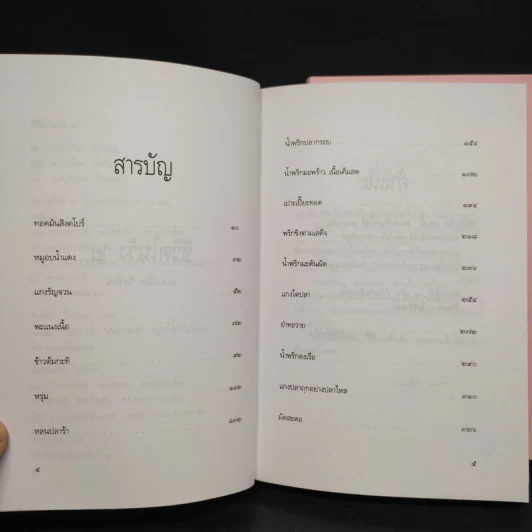 สารบัญ
ทอดมันสิงคโปร์ ๑๐
หมูอบน้ำแดง ๓๒
แกงรัญจวน ๕๒
พะแนงเนื้อ ๗๒
ข้าวต้มกะทิ ๙๒
หรุ่ม ๑๑๒
หลนปลาร้า ๑๓๒
๔
น้ำพริกปลากรอบ ๑๕๔
น้ำพริกมะพร้าว เนื้อเค็มสด ๑๗๒
เปาะเปี๊ยะทอด ๑๙๔
พริกขิงตามเสด็จ ๒๑๘
น้ำพริกมะตันผัด ๒๓๖
แกงไตปลา ๒๕๔
ยำทะวาย ๒๗๒
น้ำพริกลงเรือ ๒๙๐
แกงปลาดุกอย่างปลาไหล ๓๑๐
ผัดสะตอ ๓๒๖
๕